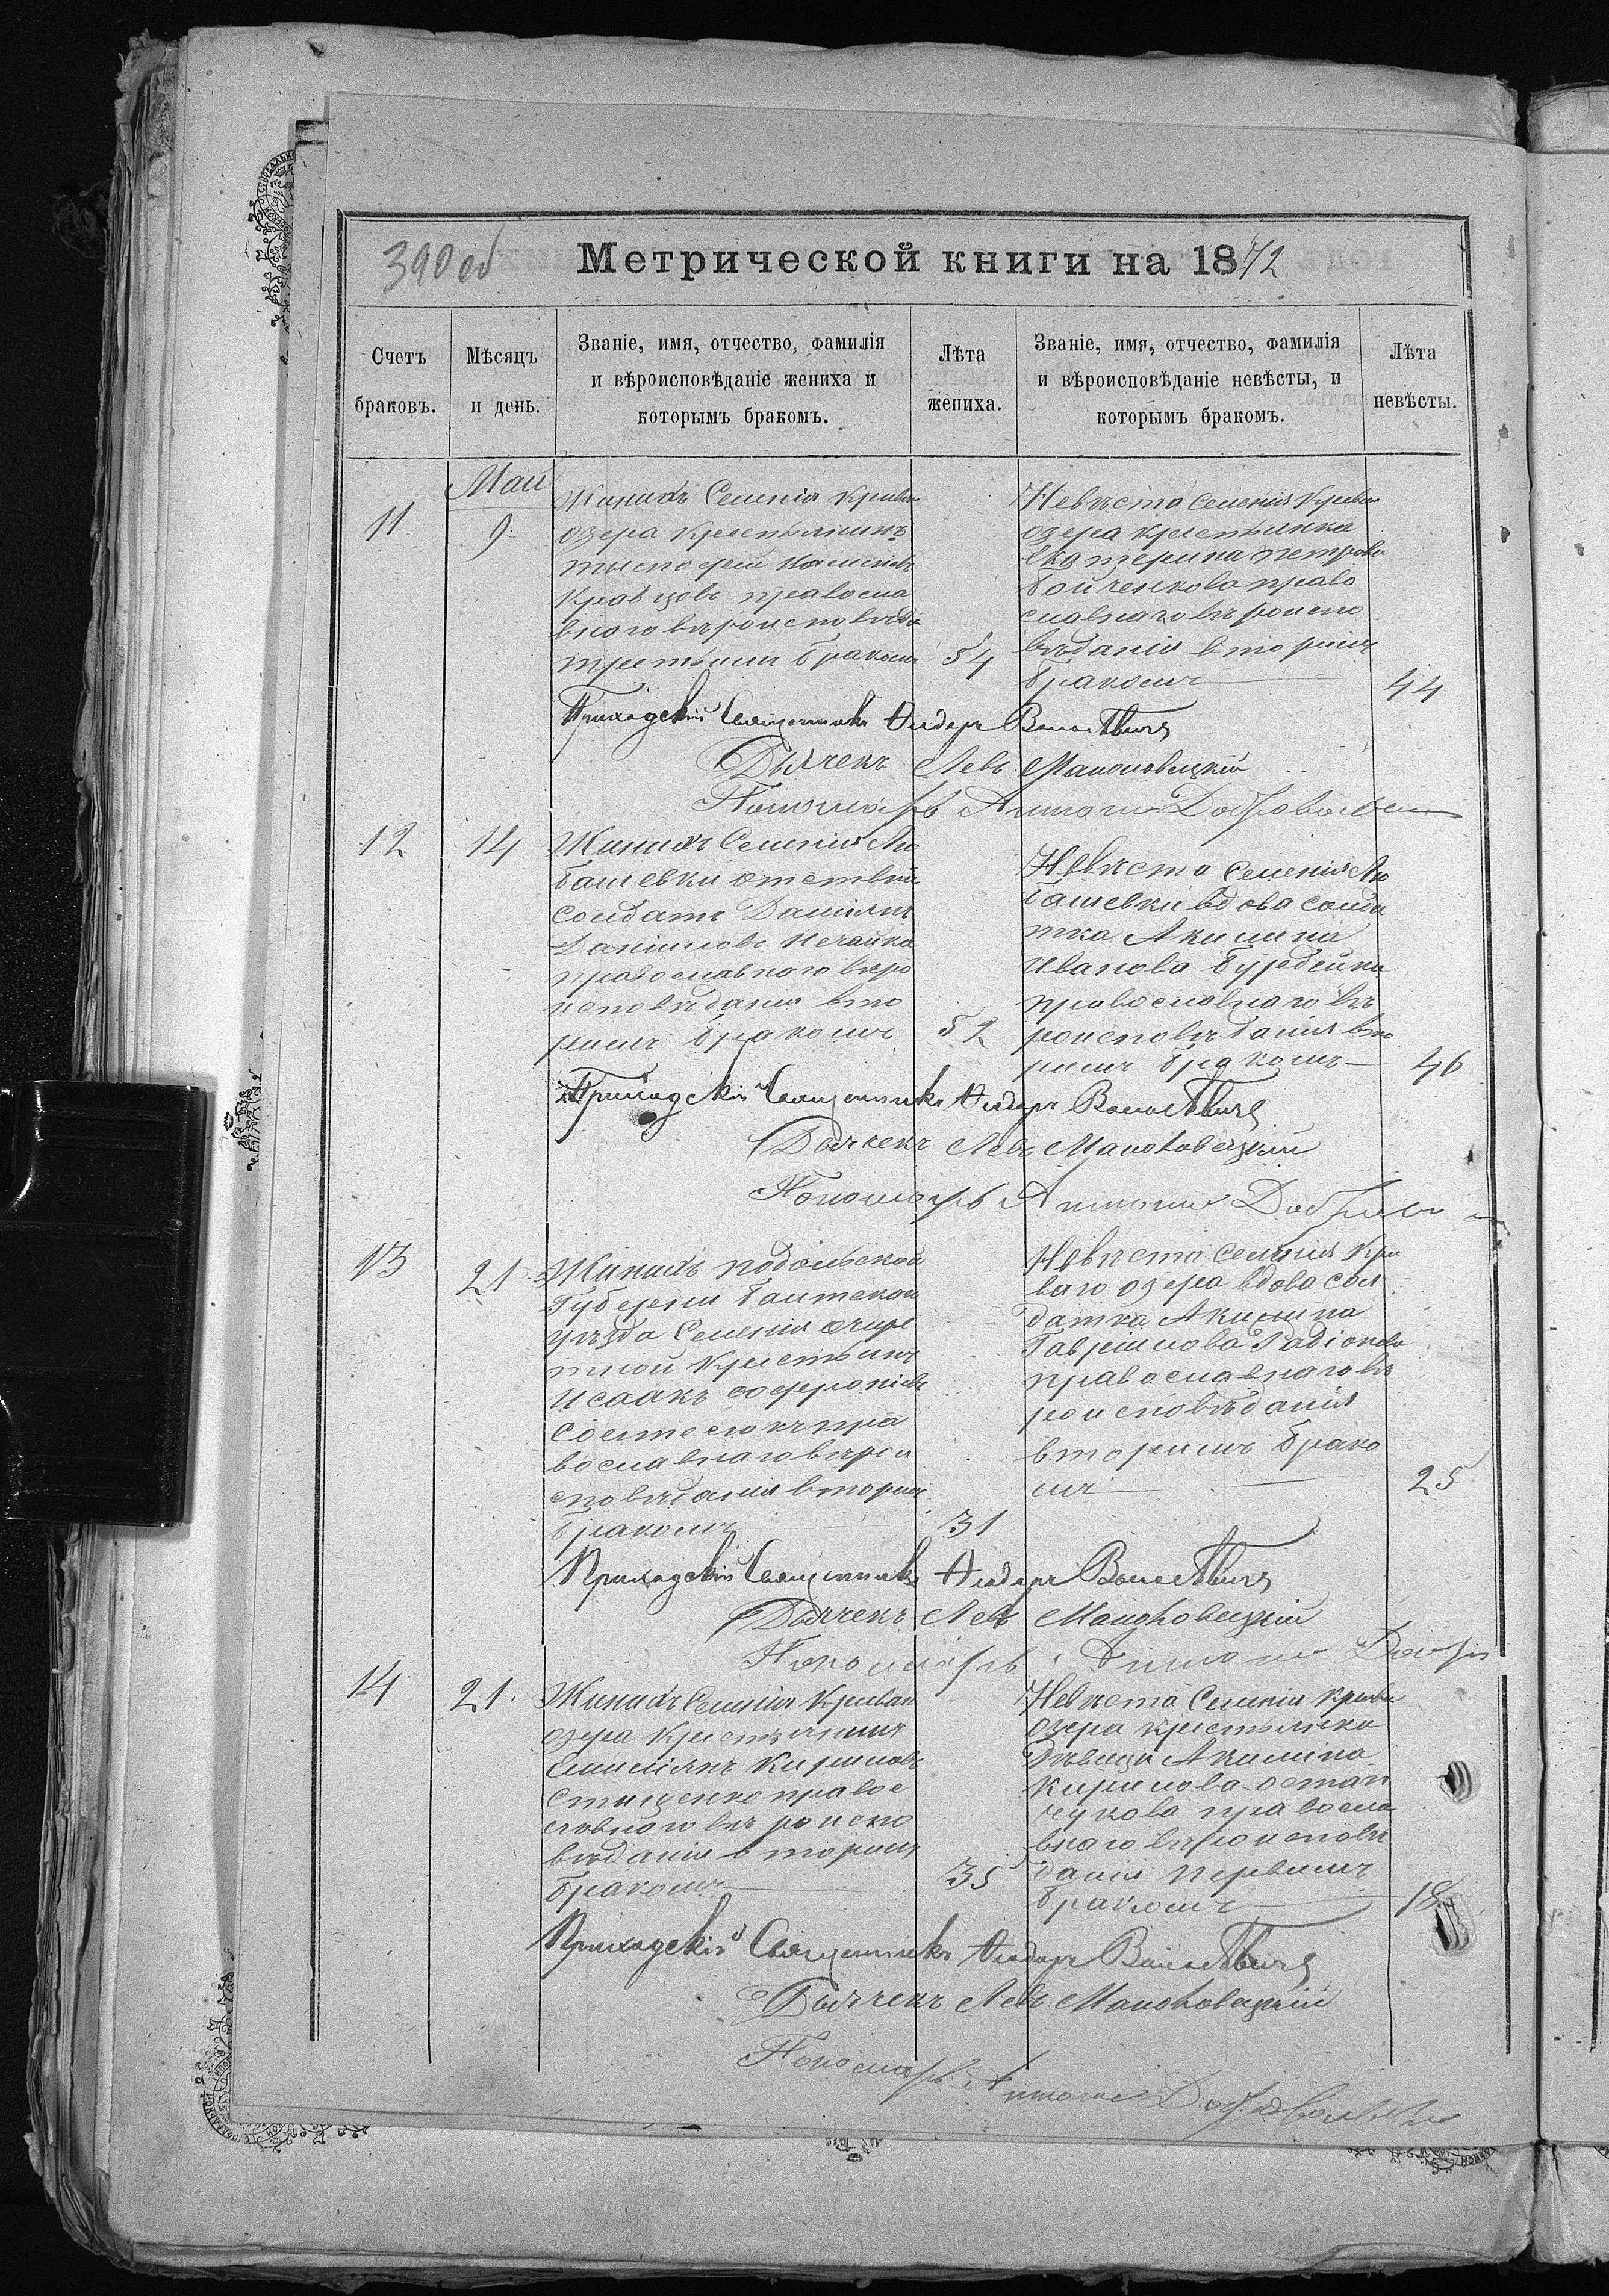 390 об
Метрической книги на 1872
Счетъ браковъ.
Мѣсяцъ и день.
Званіе, имя, отчество, фамилія
и вѣроисповѣданіе жениха и
которымъ бракомъ.
Лѣта
жениха.
Званіе, имя, отчество, фамилія
и вѣроисповѣданіе невѣсты, и
которымъ бракомъ.
Лѣта
невѣсты.
Май
11
9
Жинихъ Селенія Криваго
озера крестьянинъ
Кравцовъ правосла
внаго вѣроисповѣда
третьимъ бракомъ
54
Невѣста Селенія Криваго
озера крестьянка
Екатерина Петрова
Бойченкова право
славнаго вѣроиспо
вѣданія вторымъ
бракомъ
44
Приходскій Священникъ Ѳеодоръ
Дьячекъ Левъ Маньковецкій
Пономарь Антоній
12
14
Жинихъ Селенія Лю
башевки отставній
солдатъ Даміянъ
Даніиловъ Нечайко
православнаго вѣро
исповѣданія вто
римъ бракомъ
52
Невѣста Селенія Лю
башевки вдова солда
тка Акилина
Иванова Бурдейна
православнаго вѣ
роисповѣданія вто
римъ бракомъ
46
Приходскій Священникъ Ѳеодоръ
Дьячекъ Левъ Маньковецкій
Пономарь Антоній
13
21
Жинихъ Подольской
Губерніи Балтской
уѣзда Селенія Очере
тной Крестьянинъ
Исаакъ Софроніевъ
пра
вославнаго вѣрои
сповѣданія вторим
бракомъ
31
Невѣста Селенія Кри
ваго озера вдова сол
датка Акилина
Гавріилова Радіонова
православнаго вѣ
роисповѣданія
вторимъ брако
мъ
25
Приходскій Священникъ Ѳеодоръ
Дьячекъ Левъ Маньковецкій
Пономарь Антоній
14
21.
Жинихъ Селенія Криваго
озера крестьянинъ
Емиліянъ Кириловъ
Стищенко правос
лавного вѣроиспо
вѣданія вторимъ
бракомъ
35
Невѣста Селенія Крива
озера крестьянка
дѣвица Акилина
Кирилова Остап
чукова правосла
внаго вѣроисповѣ
данія первымъ
бракомъ
18
Приходскій Священникъ Ѳеодоръ
Дьячекъ Левъ Маньковецкій
Пономарь Антоній